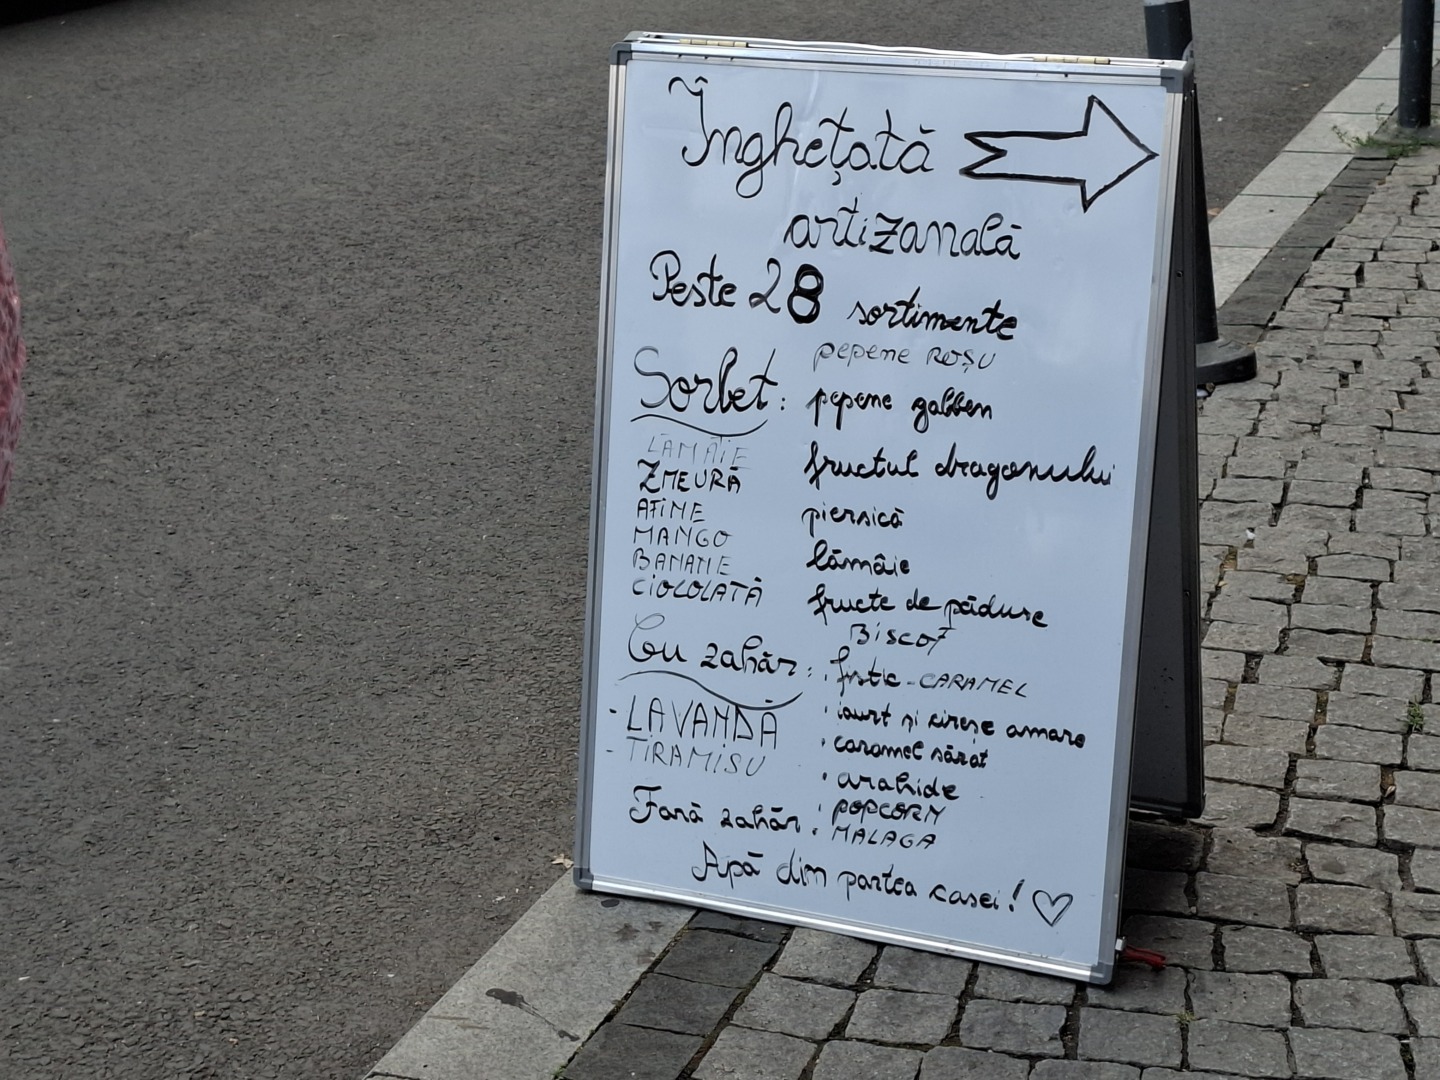 Înghețată
artizanală
Peste 28 sortimente
pepene ROȘU
Sorbet: pepene galben
LĂMÂIE
fructul dragonului
ZMEURĂ
AFINE
piersică
MANGO
lămâie
BANANE
CIOCOLATĂ
fructe de pădure
BISCOT
Cu zahăr:
fistic - CARAMEL
- LAVANDĂ
iaurt și cireșe amare
- TIRAMISU
caramel sărat
arahide
POPCORN
Fară zahăr
MALAGA
Apă din partea casei! ♡